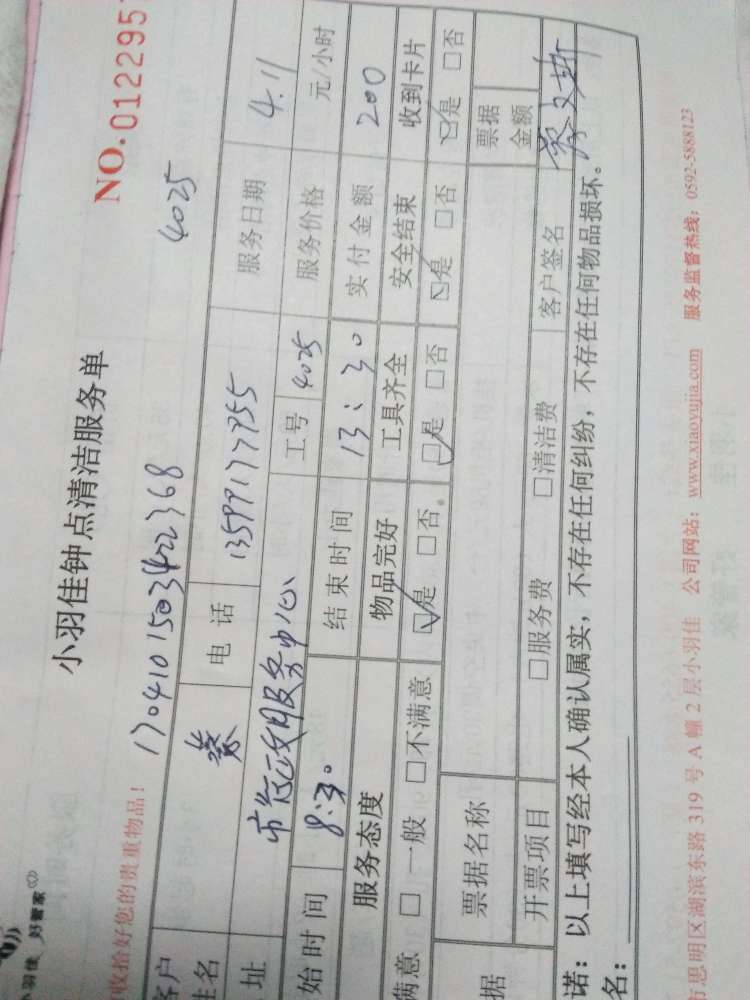 小羽佳 好管家
小羽佳钟点清洁服务单
NO.0122957
收拾好您的贵重物品！ 1704101503402368 4025
客户
姓名 蔡 电话 13599177755 服务日期 4.11
址 市 政服务中心 工号 4025 服务价格 元/小时
始时间 8:30 结束时间 13:30 实付金额 200
服务态度 物品完好 工具齐全 安全结束 收到卡片
满意 □一般 □不满意 ☑是 □否。 ☑是 □否 ☑是 □否 ☑是 □否
据 票据名称 票据金额
开票项目 □服务费 □清洁费 客户签名
诺：以上填写经本人确认属实，不存在任何纠纷，不存在任何物品损坏。
名：
市思明区湖滨东路 319 号 A 幢 2 层小羽佳 公司网站：www.xiaoyujia.com 服务监督热线：0592-5888123